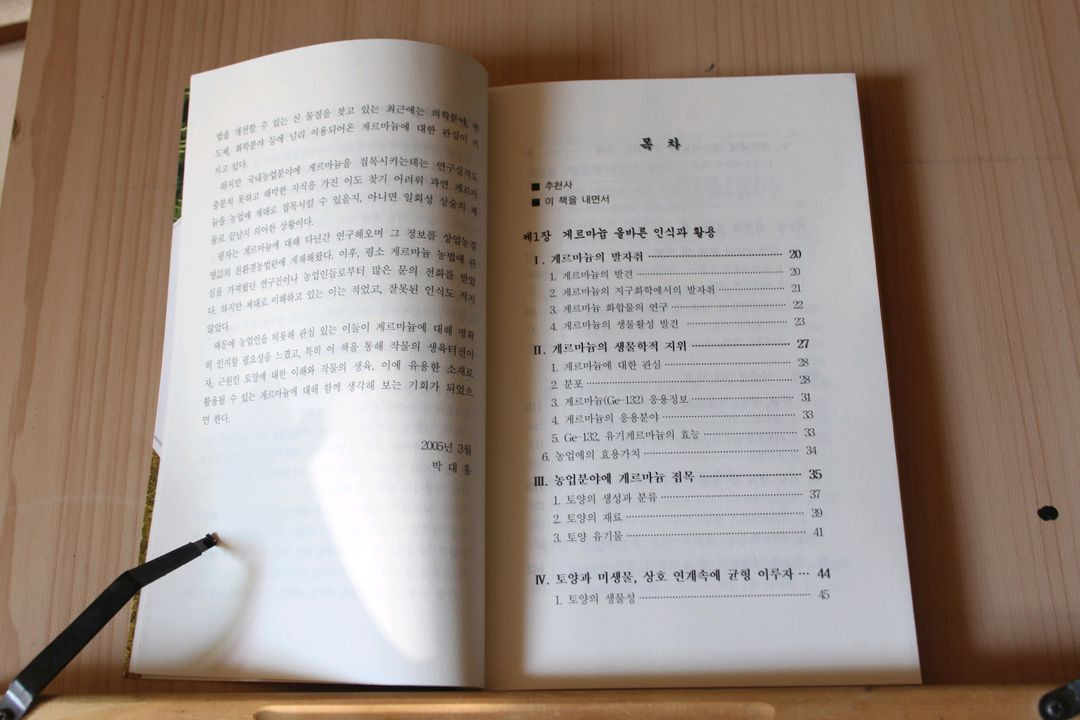 법을 개선할 수 있는 신 물질을 찾고 있는 최근에는 의학분야, 반
도체, 화학분야 등에 널리 이용되어온 게르마늄에 대한 관심이 커
지고 있다.
하지만 국내농업분야에 게르마늄을 접목시키는데는 연구실적도
충분치 못하고 해박한 지식을 가진 이도 찾기 어려워 과연 게르마
늄을 농업에 제대로 접목시킬 수 있을지, 아니면 일회성 상술의 제
물로 끝날지 의아한 상황이다.
필자는 게르마늄에 대해 다년간 연구해오며 그 정보를 상업농경
영誌의 친환경농법란에 게재해왔다. 이후, 평소 게르마늄 농법에 관
심을 가져왔던 연구진이나 농업인들로부터 많은 문의 전화를 받았
다. 하지만 제대로 이해하고 있는 이는 적었고, 잘못된 인식도 적지
않았다.
때문에 농업인을 비롯해 관심 있는 이들이 게르마늄에 대해 명확
히 인지할 필요성을 느꼈고, 특히 이 책을 통해 작물의 생육터전이
자, 근원인 토양에 대한 이해와 작물의 생육, 이에 유용한 소재로
활용될 수 있는 게르마늄에 대해 함께 생각해 보는 기회가 되었으
면 한다.
2005년 3월
박 대 홍
목 차
■ 추천사
■ 이 책을 내면서
제1장 게르마늄 올바른 인식과 활용
Ⅰ. 게르마늄의 발자취 ⋯⋯⋯⋯⋯⋯⋯⋯ 20
1. 게르마늄의 발견 ⋯⋯⋯⋯⋯⋯⋯⋯ 20
2. 게르마늄의 지구화학에서의 발자취 ⋯⋯⋯⋯ 21
3. 게르마늄 화합물의 연구 ⋯⋯⋯⋯⋯⋯ 22
4. 게르마늄의 생물활성 발견 ⋯⋯⋯⋯⋯⋯ 23
Ⅱ. 게르마늄의 생물학적 지위 ⋯⋯⋯⋯⋯⋯ 27
1. 게르마늄에 대한 관심 ⋯⋯⋯⋯⋯⋯⋯ 28
2. 분포 ⋯⋯⋯⋯⋯⋯⋯⋯⋯⋯⋯ 28
3. 게르마늄(Ge-132) 응용정보 ⋯⋯⋯⋯⋯⋯ 31
4. 게르마늄의 응용분야 ⋯⋯⋯⋯⋯⋯⋯ 33
5. Ge-132, 유기게르마늄의 효능 ⋯⋯⋯⋯⋯ 33
6. 농업에의 효용가치 ⋯⋯⋯⋯⋯⋯⋯⋯ 34
Ⅲ. 농업분야에 게르마늄 접목 ⋯⋯⋯⋯⋯⋯ 35
1. 토양의 생성과 분류 ⋯⋯⋯⋯⋯⋯⋯⋯ 37
2. 토양의 재료 ⋯⋯⋯⋯⋯⋯⋯⋯⋯⋯ 39
3. 토양 유기물 ⋯⋯⋯⋯⋯⋯⋯⋯⋯⋯ 41
Ⅳ. 토양과 미생물, 상호 연계속에 균형 이루자 ⋯ 44
1. 토양의 생물성 ⋯⋯⋯⋯⋯⋯⋯⋯⋯ 45